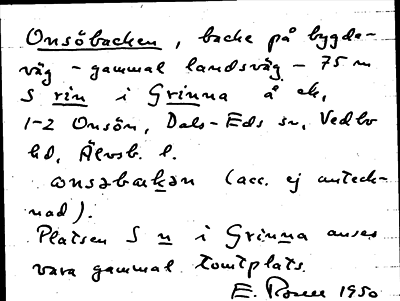 Onsöbacken, backe på bygde-
väg - gammal landsväg - 75 m
S rin i Grinna å ek.
1-2 Onsön, Dals-Eds sn, Vedbo
hd, Älvsb. l.
ɷnsəbakən (acc. ej anteck-
nad).
Platsen S n i Grinna anses
vara gammal tomtplats.
E. 1950